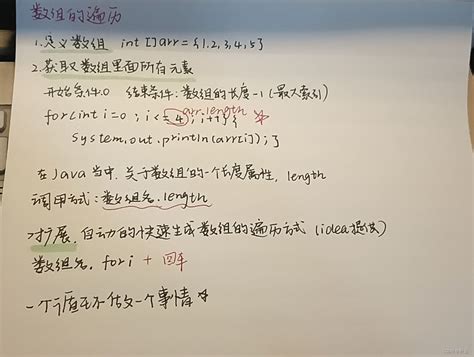 数组的遍历
1.定义数组 int []arr = {1,2,3,4,5}
2.获取数组里面所有元素
开始条件.0 结束条件:数组的长度-1(最大索引)
for(int i=0;i<=4;i++){
arr.length
System.out.println(arr[i]);}
在Java当中,关于数组的一个长度属性,length
调用方式:数组名.length
扩展,自动的快速生成数组的遍历方式(idea提供)
数组名.fori + 回车
一个循环只做一个事情